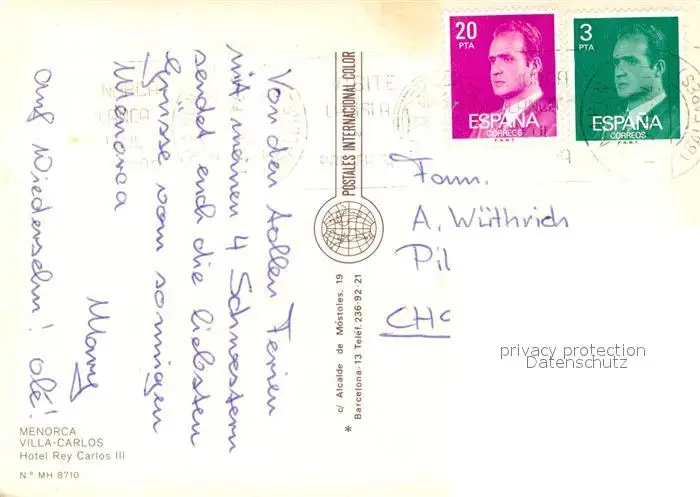 20
PTA
ESPAÑA
CORREOS
F.N.M.T.
3
PTA
ESPAÑA
CORREOS
F.N.M.T.
Von den tollen Ferien
mit meinen 4 Schwestern
sendet euch die liebsten
Grüsse vom sonnigen
Menorca
Auf Wiedersehn! olé!
POSTALES INTERNACIONAL COLOR
c/ Alcalde de Móstoles, 19
* Barcelona-13 Teléf. 236-92-21
Fam.
A. Wüthrich
Pil
CH
privacy protection
Datenschutz
MENORCA
VILLA-CARLOS
Hotel Rey Carlos III
N.º MH 8710